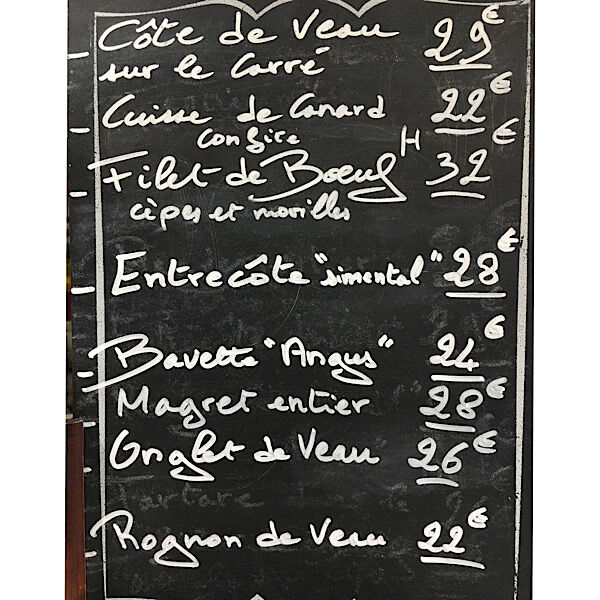 - Côte de Veau 29€
sur le Carré
- Cuisse de Canard 22€
confite
- Filet de Boeuf H 32€
cèpes et morilles
- Entrecôte "simental" 28€
- Bavette "Angus" 24€
- Magret entier 28€
- Onglet de Veau 26€
tartare
- Rognon de Veau 22€